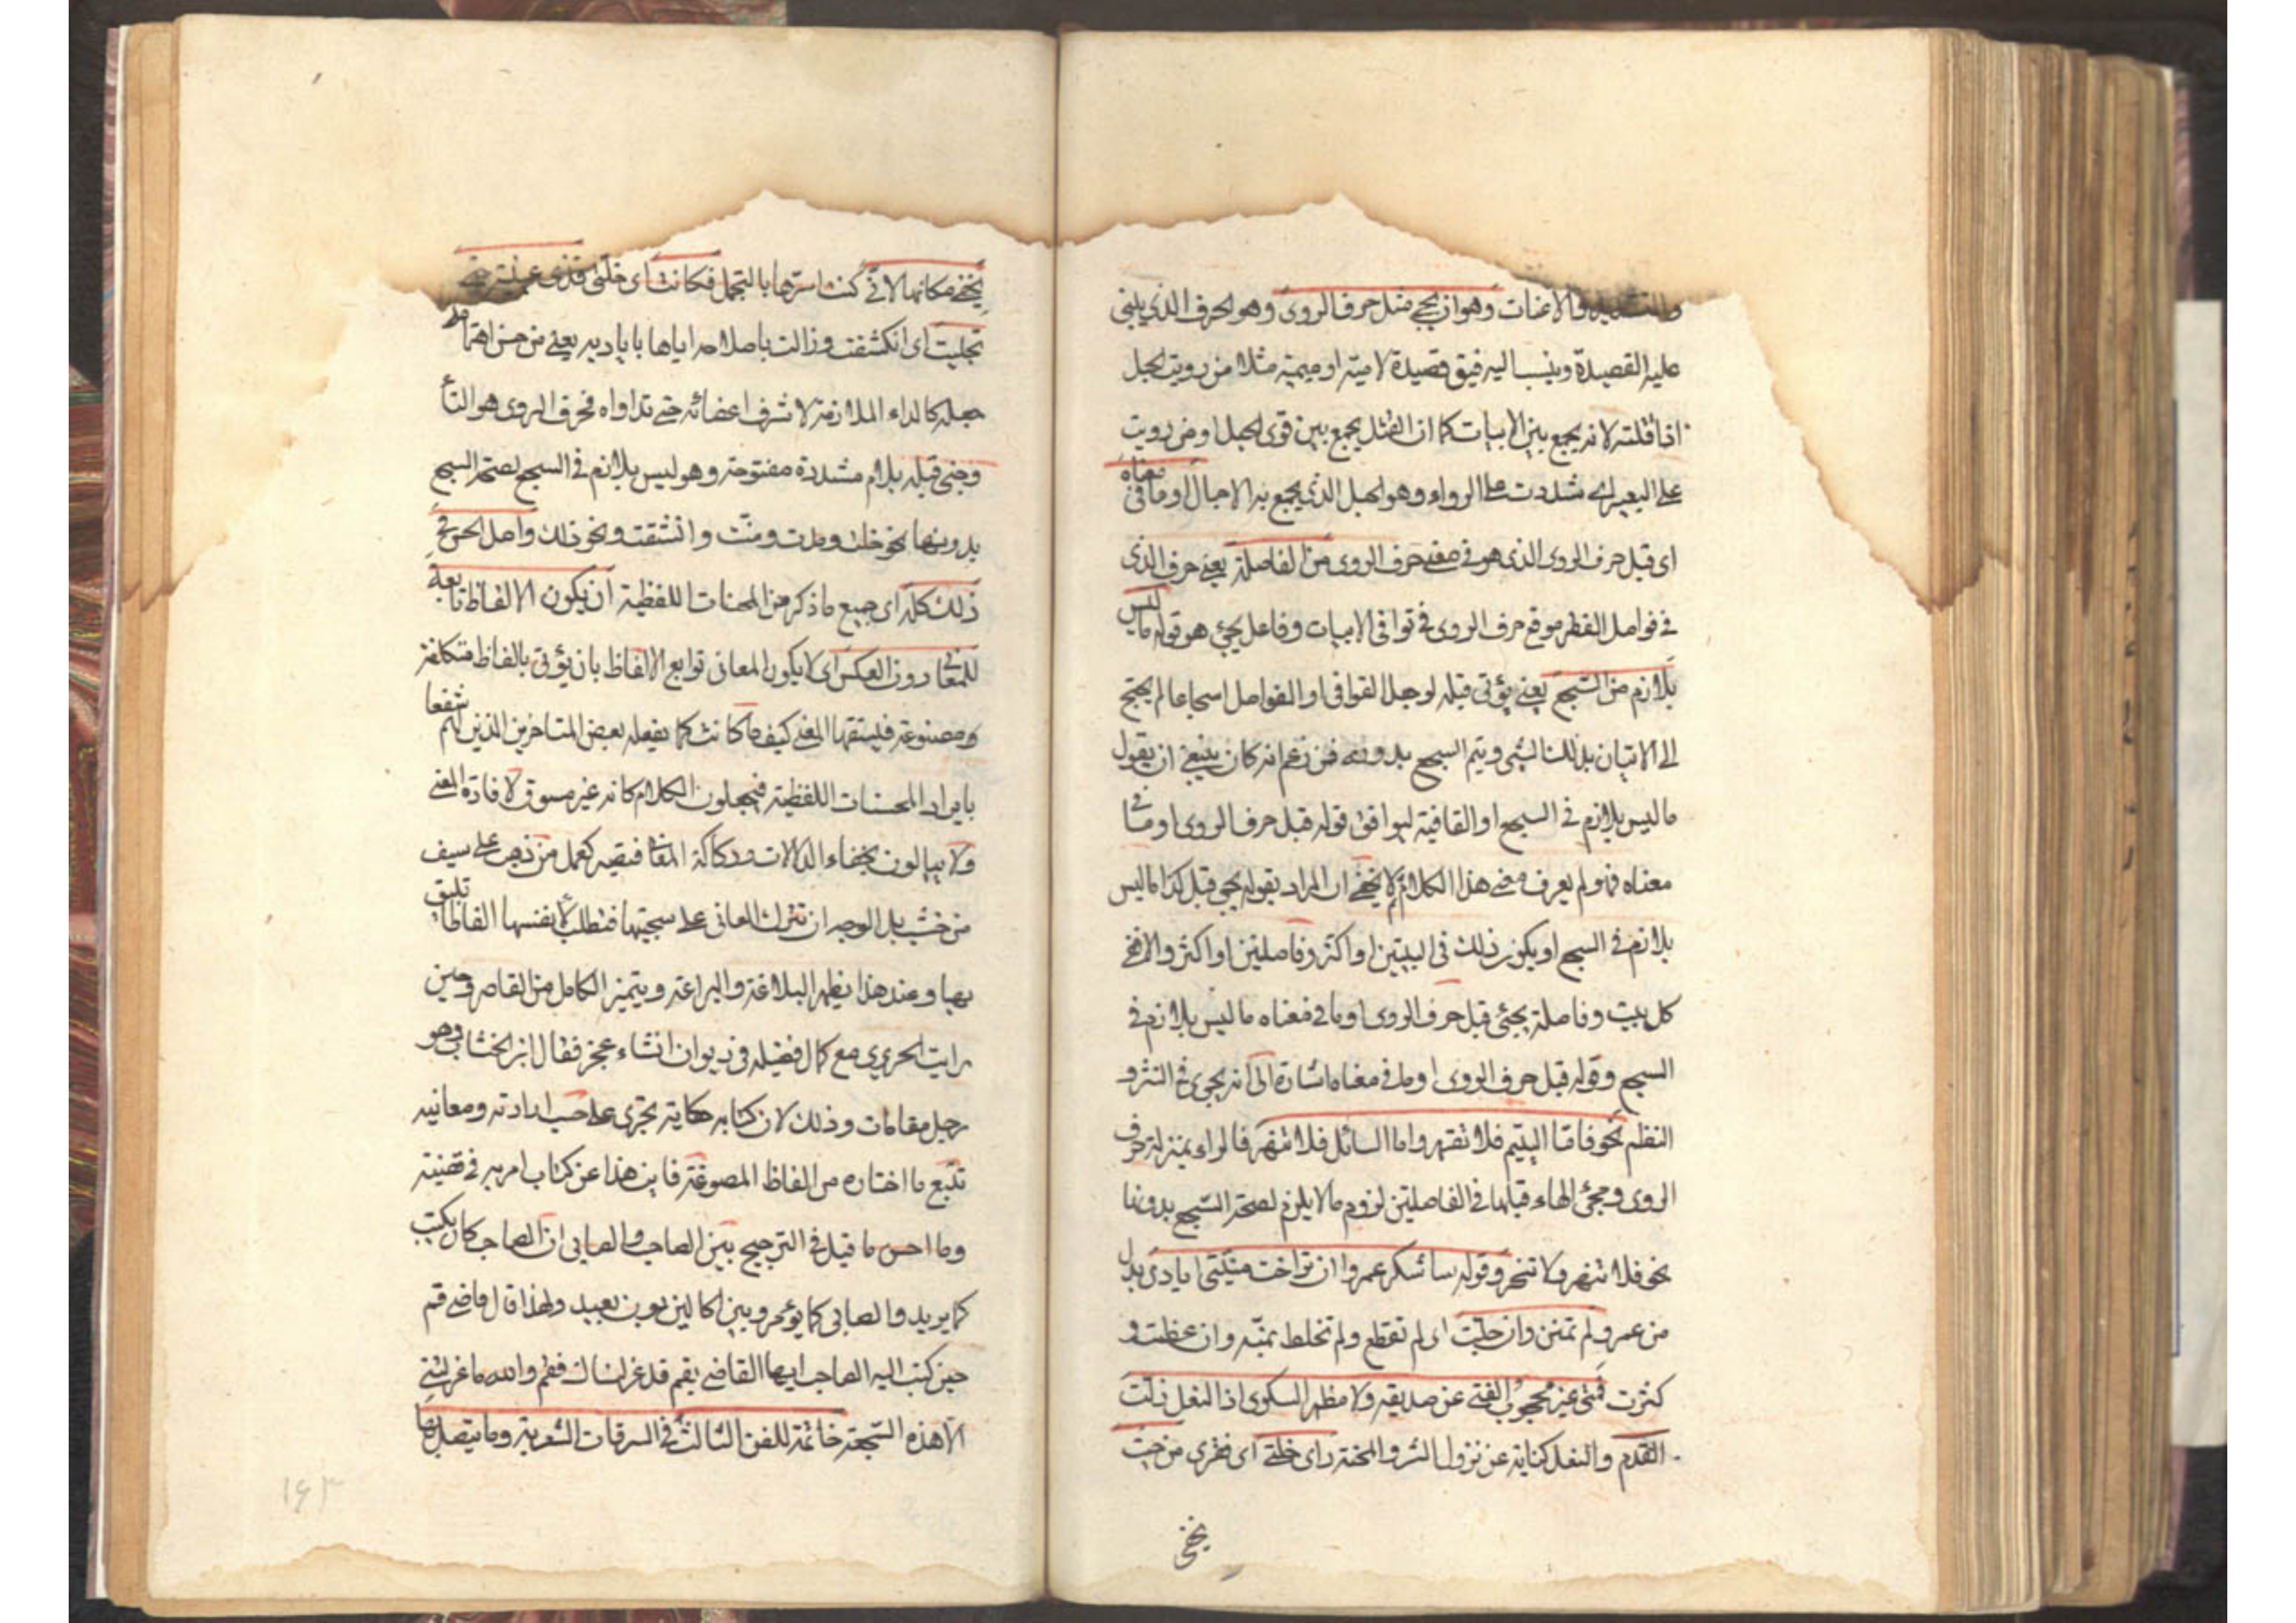 والتشديد والاعنات وهو ان يجئ مثل حرف الروى وهو الحرف الذى يبنى
عليه القصيدة وينسب اليه فيق قصيدة لامية او ميمية مثلا من رويت الحبل
اذا فتلته لانه يجمع بين الابيات كما ان الفتل يجمع بين قوى الحبل او من رويت
على البعير اى شددت عليه الرواء وهو الحبل الذى يجمع به الاحمال او ما فى معناه
اى قبل حرف الروى الذى هو فى معنى حرف الروى من الفاصلة يعنى حرف الذى
فى فواصل الفقر موقع حرف الروى فى قوافى الابيات وفاعل يجئ هو قوله ما ليس
بلازم من السجع يعنى يؤتى قبله لو جعل القوافى او الفواصل اسجاعا لم يحتج
الى الاتيان بذلك الشئ ويتم السجع بدونه فمن زعم انه كان ينبغى ان يقول
ما ليس بلازم فى السجع او القافية ليوافق قوله قبل حرف الروى او ما فى
معناه فهو لم يعرف معنى هذا الكلام ثم لا يخفى ان المراد بقوله يجئ قبل كذا ما ليس
بلازم فى السجع ان يكون ذلك فى البيتين او اكثر وفاصلتين او اكثر والا ففى
كل بيت وفاصلة يجئ قبل حرف الروى او ما فى معناه ما ليس بلازم فى
السجع وقوله قبل حرف الروى او ما فى معناه اشارة الى انه يجرى فى النثر و
النظم نحو فاما اليتيم فلا تقهر واما السائل فلا تنهر فالراء بمنزلة حرف
الروى ومجئ الهاء قبلها فى الفاصلتين لزوم ما لا يلزم لصحة السجع بدونها
نحو فلا تنهر ولا تنحر وقوله ساشكر عمروا ان تراخت منيتى ايادى بدل
من عمرو لم تمنن وان جلت اى لم تقطع ولم تخلط بمنة وان عظمت و
كثرت فتى غير محجوب الغنى عن صديقه ولا مظهر الشكوى اذا النعل زلت
القدم والنعل كناية عن نزول الشر والمحنة راى خلتى اى فقرى من حيث
يخفى
يخفى مكانها لانى كنت استرها بالتجمل فكانت اى خلتى قذى عينيه حتى
تجليت اى انكشفت وزالت باصلاحه اياها باياديه يعنى من حسن اهتمامه
جعله كالداء الملازمة لاشرف اعضائه حتى تداواه فحرف الروى هو التاء
وجئ قبله بلام مشددة مفتوحة وهو ليس بلازم فى السجع لصحة السجع
بدونها نحو خلت ومدت ومنت وانشقت ونحو ذلك واصل الحسن فى
ذلك كله اى جميع ما ذكر من المحسنات اللفظية ان يكون الالفاظ تابعة
للمعانى دون العكس اى لا يكون المعانى توابع الالفاظ بان يؤتى بالفاظ متكلفة
ومصنوعة فيستتبعها المعنى كيف ما كانت كما يفعله بعض المتاخرين الذين لهم شغفا
بايراد المحسنات اللفظية فيجعلون الكلام كانه غير مسوق لافادة المعنى
ولا يبالون بخفاء الدلالات وركاكة المعانى فيصير كغمد من ذهب على سيف
من خشب بل الوجه ان تترك المعانى على سجيتها فتطلب لانفسها الفاظا تليق
بها وعند هذا يظهر البلاغة والبراعة ويتميز الكامل من القاصر وحين
رايت الحريرى مع كمال فضيله فى ديوان انشاء عجز فقال ابن الخشاب هو
رجل مقامات وذلك لان كتابه حكاية تجرى على حسب ارادته ومعانيه
تتبع ما اختاره من الفاظ المصوغة فاين هذا عن كتاب امر به فى قضية
وما احسن ما قيل فى الترجيح بين الصاحب والصابى ان الصاحب كان يكتب
كما يريد والصابى كما يؤمر وبين الحالين بون بعيد ولهذا قال قاضى قم
حين كتب اليه الصاحب ايها القاضى بقم قد عزلناك فقم والله ما عزلتنى
الا هذه السجعة خاتمة للفن الثالث فى السرقات الشعرية وما يتصل بها
۱۶۳